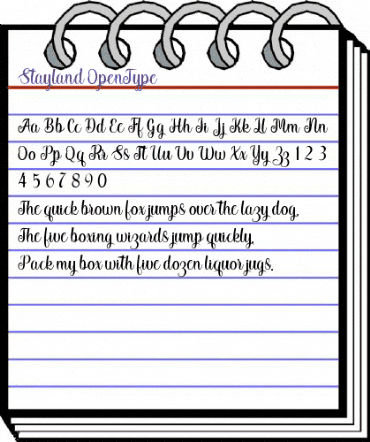 Stayland OpenType
Aa Bb Cc Dd Ee Ff Gg Hh Ii Jj Kk Ll Mm Nn
Oo Pp Qq Rr Ss Tt Uu Vv Ww Xx Yy Zz 1 2 3
4 5 6 7 8 9 0
The quick brown fox jumps over the lazy dog.
The five boxing wizards jump quickly.
Pack my box with five dozen liquor jugs.